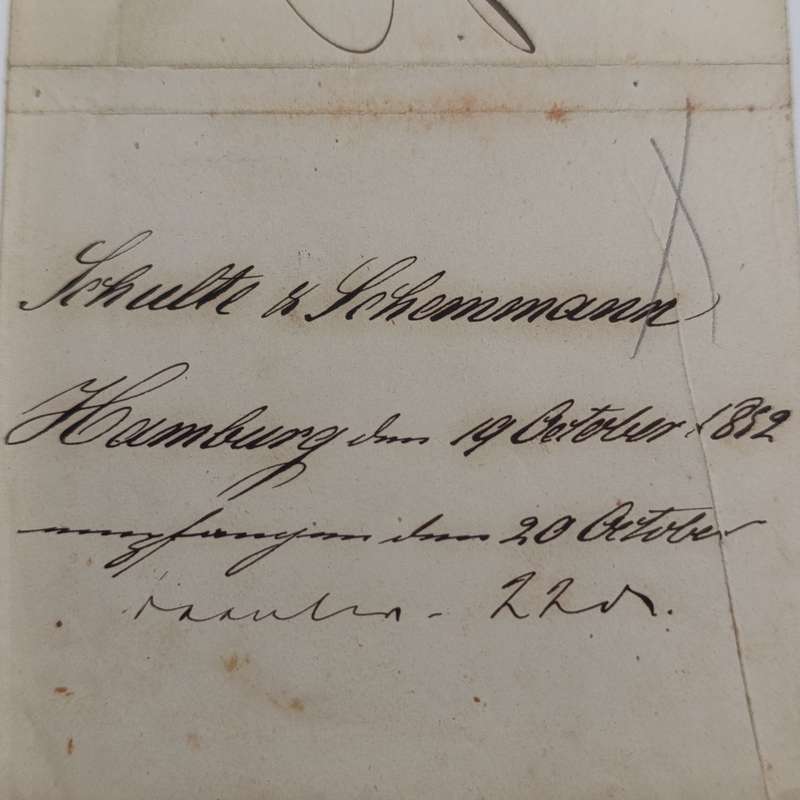 Schulte & Schemmann
Hamburg den 19 October 1852
empfangen den 20 October
22